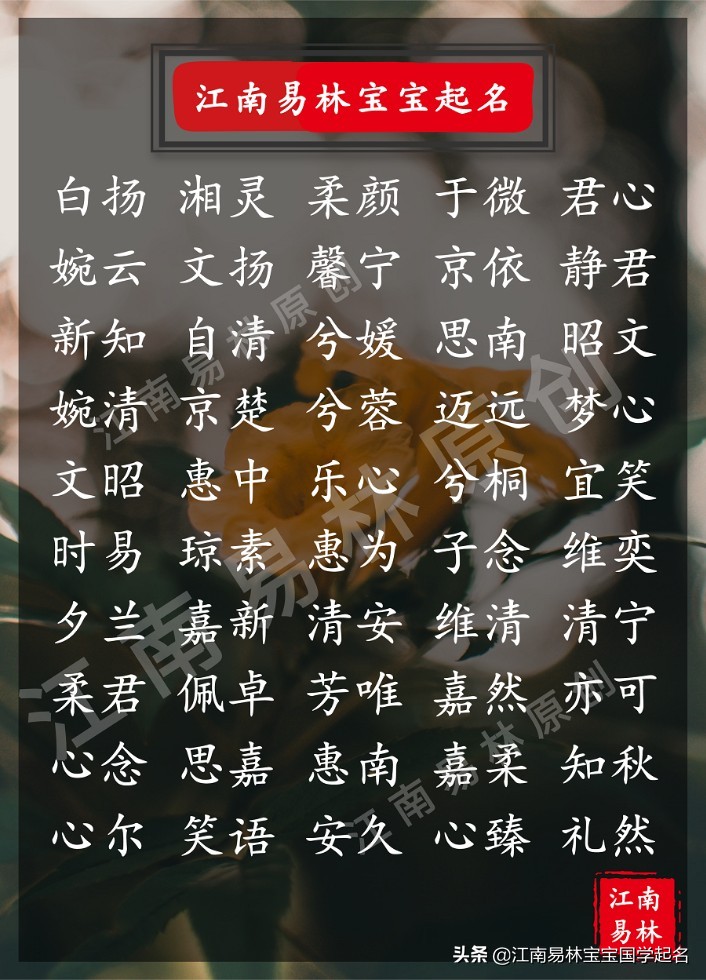 江南易林宝宝起名
白扬 湘灵 柔颜 于微 君心
婉云 文扬 馨宁 京依 静君
新知 自清 兮媛 思南 昭文
婉清 京楚 兮蓉 迈远 梦心
文昭 惠中 乐心 兮桐 宜笑
时易 琼素 惠为 子念 维奕
夕兰 嘉新 清安 维清 清宁
柔君 佩卓 芳唯 嘉然 亦可
心念 思嘉 惠南 嘉柔 知秋
心尔 笑语 安久 心臻 礼然
江南易林原创
江南易林原创
江南易林原创
江南
易林
头条 @江南易林宝宝国学起名